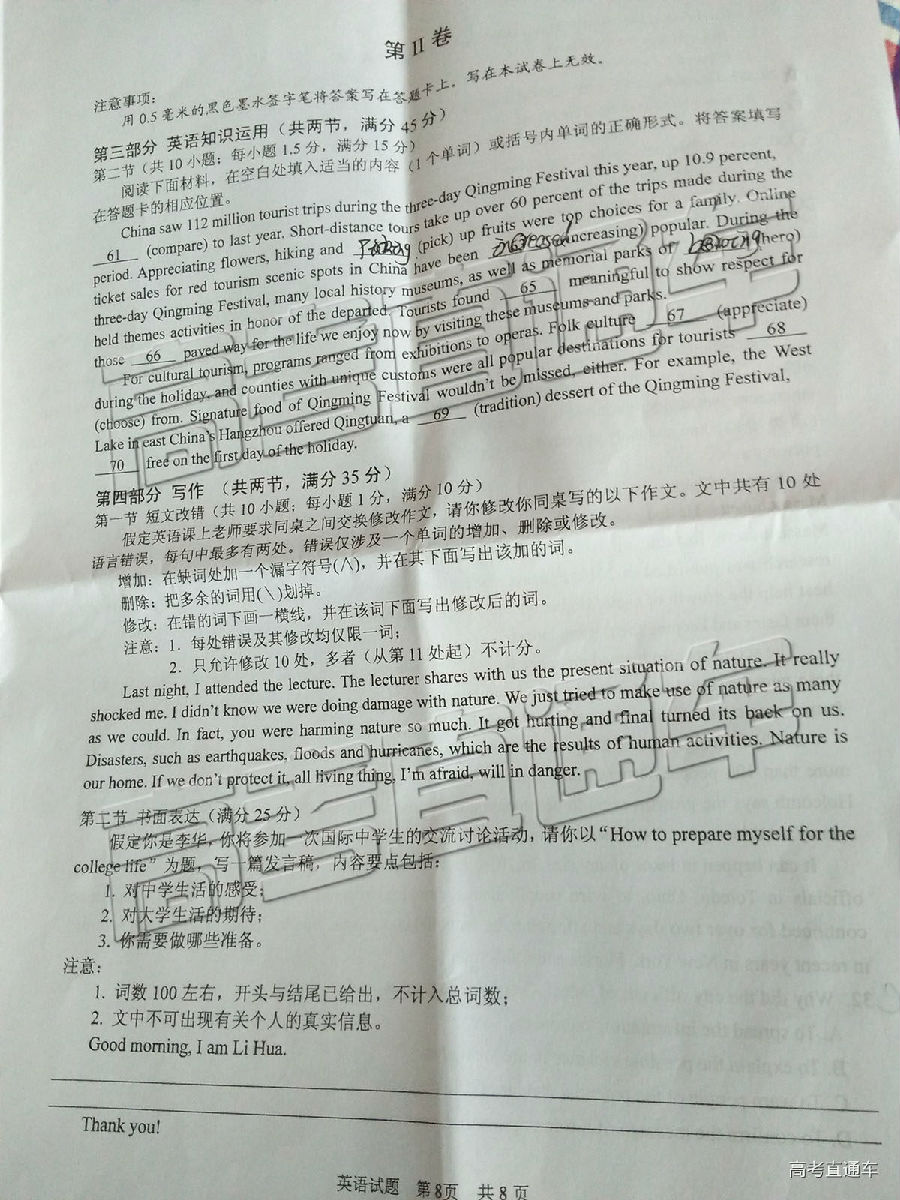 第 II 卷
注意事项:
用 0.5 毫米的黑色墨水签字笔将答案写在答题卡上，写在本试卷上无效。
第三部分 英语知识运用（共两节，满分 45 分）
第二节（共 10 小题；每小题 1.5 分，满分 15 分）
阅读下面材料，在空白处填入适当的内容（1 个单词）或括号内单词的正确形式。将答案填写
在答题卡的相应位置。
China saw 112 million tourist trips during the three-day Qingming Festival this year, up 10.9 percent,
61 (compare) to last year. Short-distance tours take up over 60 percent of the trips made during the
period. Appreciating flowers, hiking and (pick) up fruits were top choices for a family. Online
ticket sales for red tourism scenic spots in China have been (increasing) popular. During the
three-day Qingming Festival, many local history museums, as well as memorial parks of (hero)
held themes activities in honor of the departed. Tourists found 65 meaningful to show respect for
those 66 paved way for the life we enjoy now by visiting these museums and parks.
For cultural tourism, programs ranged from exhibitions to operas. Folk culture 67 (appreciate)
during the holiday, and counties with unique customs were all popular destinations for tourists 68
(choose) from. Signature food of Qingming Festival wouldn't be missed, either. For example, the West
Lake in east China's Hangzhou offered Qingtuan, a 69 (tradition) dessert of the Qingming Festival,
70 free on the first day of the holiday.
第四部分 写作 （共两节，满分 35 分）
第一节 短文改错（共 10 小题；每小题 1 分，满分 10 分）
假定英语课上老师要求同桌之间交换修改作文，请你修改你同桌写的以下作文。文中共有 10 处
语言错误，每句中最多有两处。错误仅涉及一个单词的增加、删除或修改。
增加：在缺词处加一个漏字符号(∧)，并在其下面写出该加的词。
删除：把多余的词用(\)划掉。
修改：在错的词下画一横线，并在该词下面写出修改后的词。
注意：1. 每处错误及其修改均仅限一词；
2. 只允许修改 10 处，多者（从第 11 处起）不计分。
Last night, I attended the lecture. The lecturer shares with us the present situation of nature. It really
shocked me. I didn't know we were doing damage with nature. We just tried to make use of nature as many
as we could. In fact, you were harming nature so much. It got hurting and final turned its back on us.
Disasters, such as earthquakes, floods and hurricanes, which are the results of human activities. Nature is
our home. If we don't protect it, all living thing, I'm afraid, will in danger.
第二节 书面表达（满分 25 分）
假定你是李华，你将参加一次国际中学生的交流讨论活动，请你以“How to prepare myself for the
college life”为题，写一篇发言稿，内容要点包括：
1. 对中学生活的感受；
2. 对大学生活的期待；
3. 你需要做哪些准备。
注意：
1. 词数 100 左右，开头与结尾已给出，不计入总词数；
2. 文中不可出现有关个人的真实信息。
Good morning, I am Li Hua.
Thank you!
英语试题 第 8页 共 8 页
高考直通车